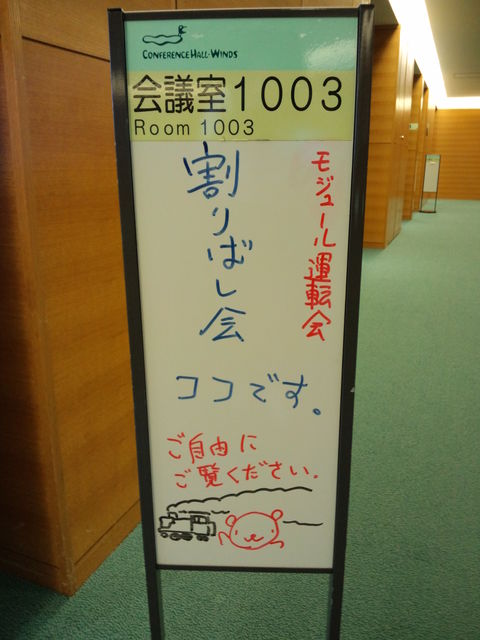 CONFERENCE HALL·WINDS
会議室1003
Room 1003
モジュール運転会
割りばし会
ココです。
ご自由に
ご覧ください.